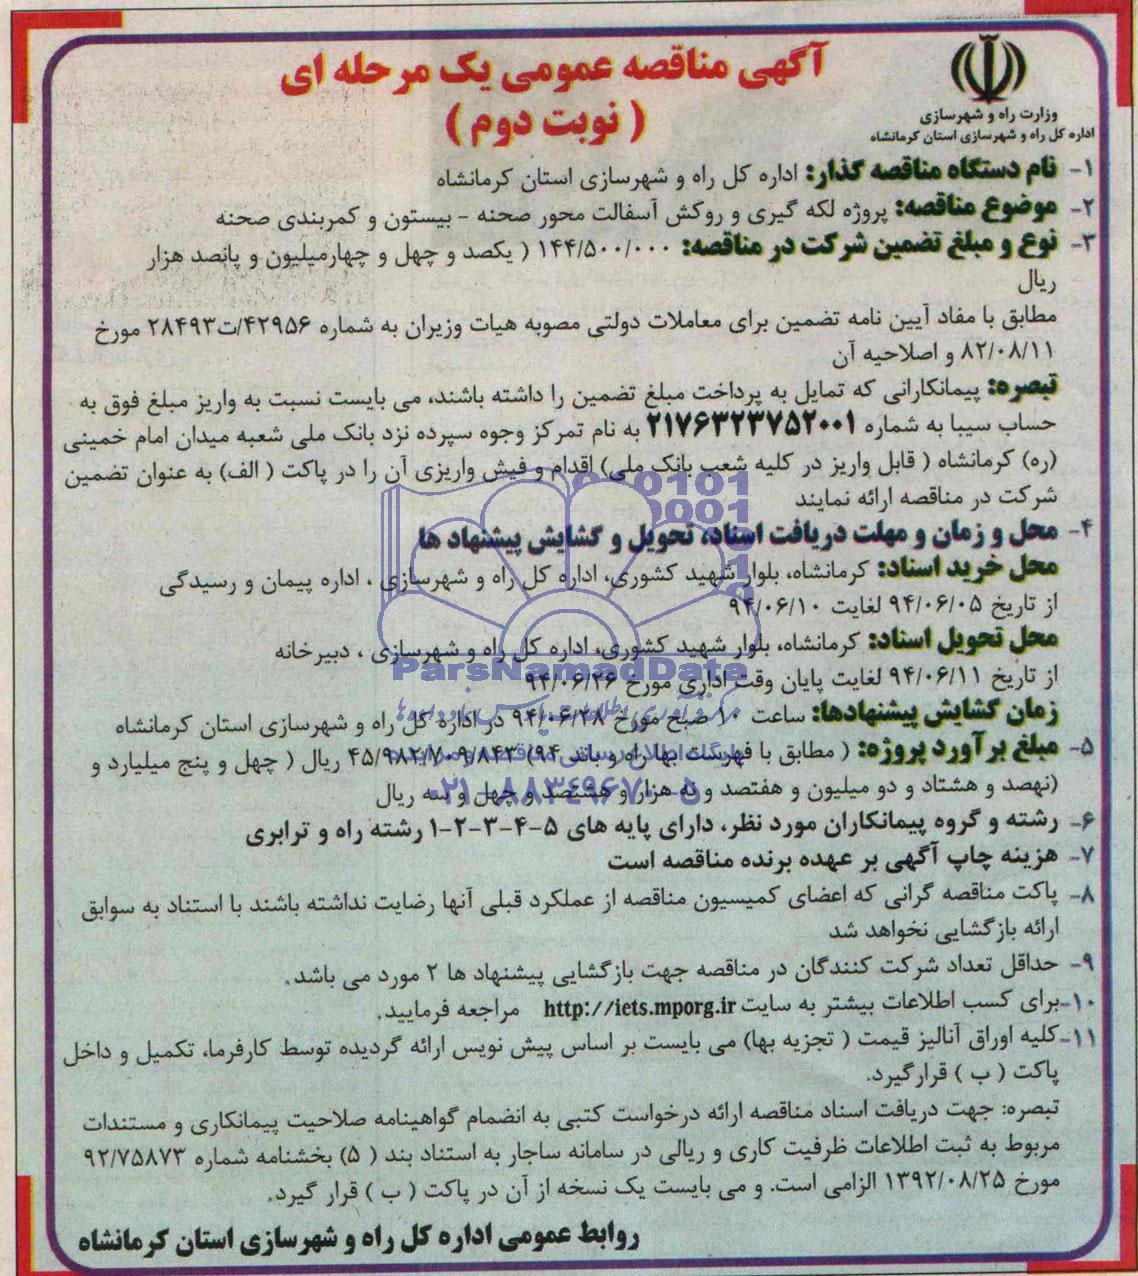 آگهی مناقصه عمومی یک مرحله ای
( نوبت دوم )
وزارت راه و شهرسازی
اداره کل راه و شهرسازی استان کرمانشاه
۱- نام دستگاه مناقصه گذار: اداره کل راه و شهرسازی استان کرمانشاه
۲- موضوع مناقصه: پروژه لکه گیری و روکش آسفالت محور صحنه - بیستون و کمربندی صحنه
۳- نوع و مبلغ تضمین شرکت در مناقصه: ۱۴۴/۵۰۰/۰۰۰ ( یکصد و چهل و چهارمیلیون و پانصد هزار
ریال
مطابق با مفاد آیین نامه تضمین برای معاملات دولتی مصوبه هیات وزیران به شماره ۴۲۹۵۶/ت۲۸۴۹۳ مورخ
۸۲/۰۸/۱۱ و اصلاحیه آن
تبصره: پیمانکارانی که تمایل به پرداخت مبلغ تضمین را داشته باشند، می بایست نسبت به واریز مبلغ فوق به
حساب سیبا به شماره ۲۱۷۶۳۲۳۷۵۲۰۰۱ به نام تمرکز وجوه سپرده نزد بانک ملی شعبه میدان امام خمینی
(ره) کرمانشاه ( قابل واریز در کلیه شعب بانک ملی) اقدام و فیش واریزی آن را در پاکت ( الف) به عنوان تضمین
شرکت در مناقصه ارائه نمایند
۴- محل و زمان و مهلت دریافت اسناد، تحویل و گشایش پیشنهاد ها
محل خرید اسناد: کرمانشاه، بلوار شهید کشوری، اداره کل راه و شهرسازی ، اداره پیمان و رسیدگی
از تاریخ ۹۴/۰۶/۰۵ لغایت ۹۴/۰۶/۱۰
محل تحویل اسناد: کرمانشاه، بلوار شهید کشوری، اداره کل راه و شهرسازی ، دبیرخانه
ParsNamadData
از تاریخ ۹۴/۰۶/۱۱ لغایت پایان وقت اداری مورخ ۹۴/۰۶/۲۶
زمان گشایش پیشنهادها: ساعت ۱۰ صبح مورخ ۹۴/۰۶/۲۸ در اداره کل راه و شهرسازی استان کرمانشاه
۵- مبلغ برآورد پروژه: ( مطابق با فهرست بها راه و باند ۹۴) ۴۵/۹۸۲/۷۰۹/۸۴۳ ریال ( چهل و پنج میلیارد و
(نهصد و هشتاد و دو میلیون و هفتصد و نه هزار و هشتصد و چهل و سه ریال
۰۲۱-۸۸۳۴۹۶۷۰-۵
۶- رشته و گروه پیمانکاران مورد نظر، دارای پایه های ۵-۴-۳-۲-۱ رشته راه و ترابری
۷- هزینه چاپ آگهی بر عهده برنده مناقصه است
۸- پاکت مناقصه گرانی که اعضای کمیسیون مناقصه از عملکرد قبلی آنها رضایت نداشته باشند با استناد به سوابق
ارائه بازگشایی نخواهد شد
۹- حداقل تعداد شرکت کنندگان در مناقصه جهت بازگشایی پیشنهاد ها ۲ مورد می باشد.
۱۰-برای کسب اطلاعات بیشتر به سایت http://iets.mporg.ir مراجعه فرمایید.
۱۱-کلیه اوراق آنالیز قیمت ( تجزیه بها) می بایست بر اساس پیش نویس ارائه گردیده توسط کارفرما، تکمیل و داخل
پاکت ( ب ) قرارگیرد.
تبصره: جهت دریافت اسناد مناقصه ارائه درخواست کتبی به انضمام گواهینامه صلاحیت پیمانکاری و مستندات
مربوط به ثبت اطلاعات ظرفیت کاری و ریالی در سامانه ساجار به استناد بند ( ۵) بخشنامه شماره ۹۲/۷۵۸۷۳
مورخ ۱۳۹۲/۰۸/۲۵ الزامی است. و می بایست یک نسخه از آن در پاکت ( ب ) قرار گیرد.
روابط عمومی اداره کل راه و شهرسازی استان کرمانشاه